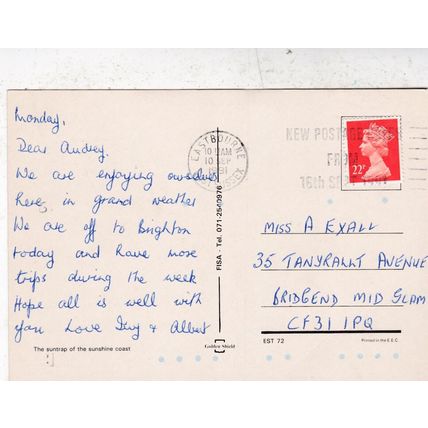 Monday,
Dear Audrey,
We are enjoying ourselves
here in grand weather
We are off to Brighton
today and have more
trips during the week
Hope all is well with
you Love Ivy & Albert
The suntrap of the sunshine coast
EASTBOURNE
10 AM
10 SEP
SUSSEX
NEW POSTAGE
FROM
16th SEPT
22P
FISA - Tel. 071-2540976
Golden Shield
MISS A EXALL
35 TANYRALLT AVENUE
BRIDGEND MID GLAM
CF31 1PQ
EST 72
Printed in the E.E.C.